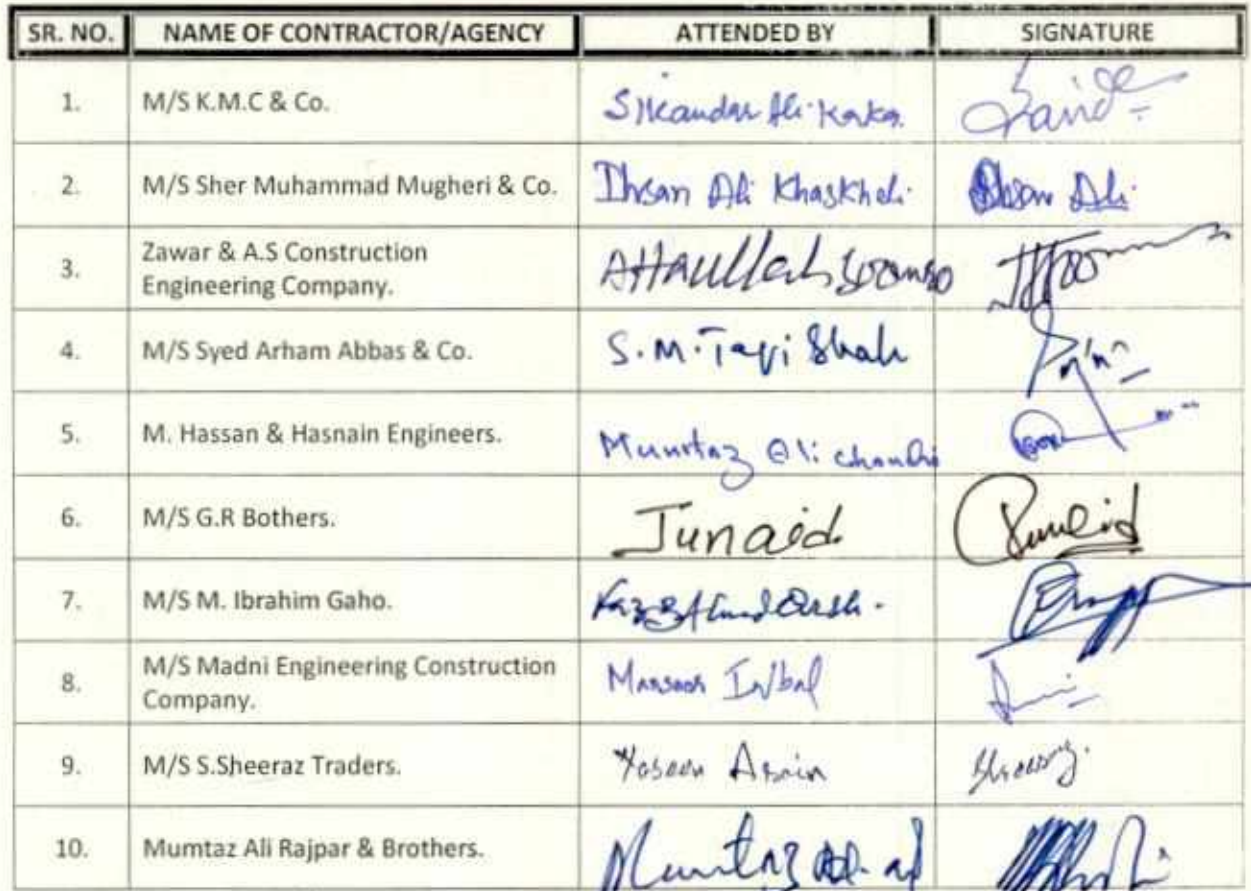 SR. NO. NAME OF CONTRACTOR/AGENCY ATTENDED BY SIGNATURE
1. M/S K.M.C & Co. Sikandar Ali
2. M/S Sher Muhammad Mugheri & Co. Ihsan Ali Khaskheli Ihsan Ali
3. Zawar & A.S Construction Attaullah
Engineering Company.
4. M/S Syed Arham Abbas & Co. S.M. Taqi Shah
5. M. Hassan & Hasnain Engineers. Mumtaz Ali
6. M/S G.R Bothers. Junaid
7. M/S M. Ibrahim Gaho.
8. M/S Madni Engineering Construction Mansoor Iqbal
Company.
9. M/S S.Sheeraz Traders. Yaseen Arain
10. Mumtaz Ali Rajpar & Brothers. Mumtaz Ali